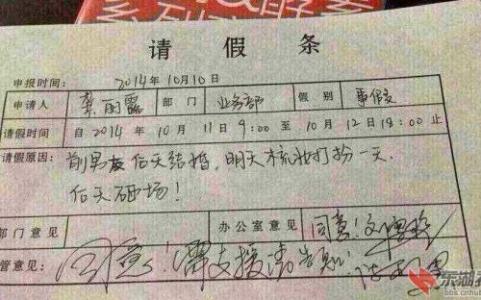 请假条
申报时间： 2014年10月10日
申请人 龚丽露 部门 业务部 假别 事假
请假时间 自2014年10月11日9:00至10月12日18:00止
请假原因： 前男友后天结婚，明天梳妆打扮一天，
后天砸场！
部门意见 办公室意见 同意！
管意见： 同意！需支援请告知！
东湖
bbs.cnhub